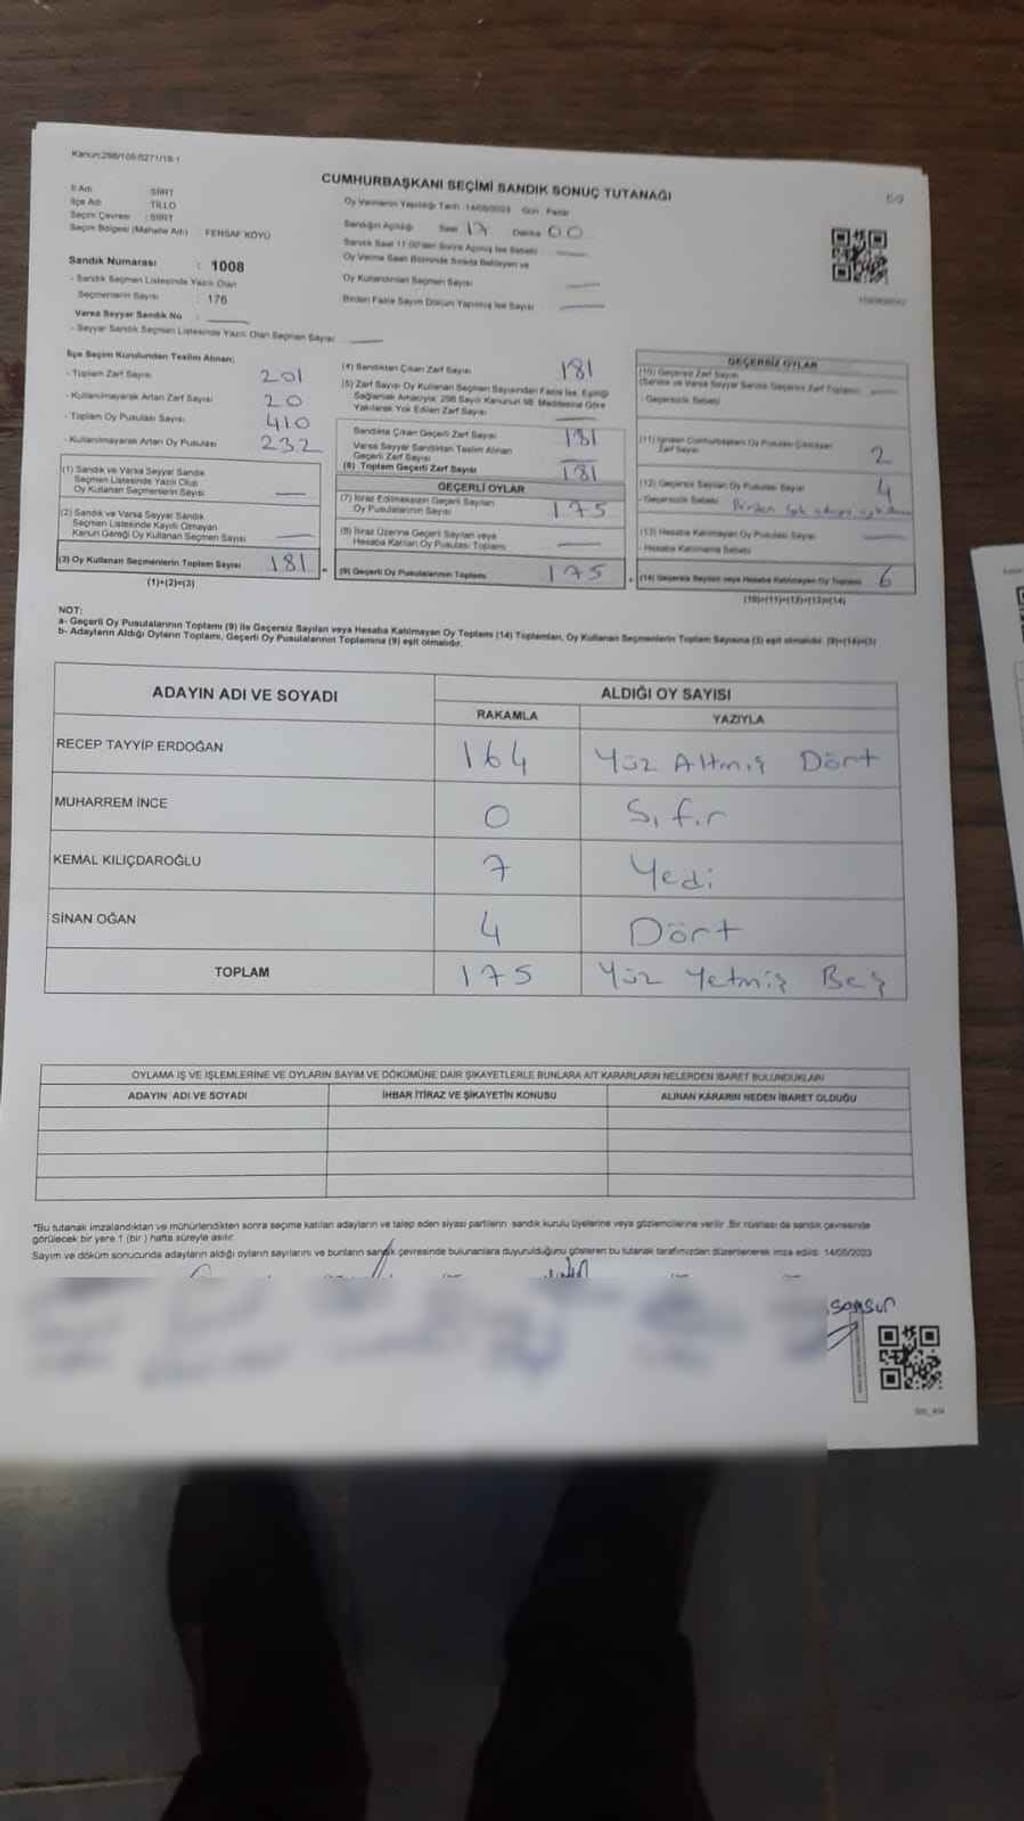 CUMHURBAŞKANI SEÇİMİ SANDIK SONUÇ TUTANAĞI
İl Adı SİİRT
İlçe Adı TİLLO
Seçim Çevresi : SİİRT
Seçim Bölgesi (Mahalle Adı) FERSAF KÖYÜ
Sandık Numarası : 1008
- Sandık Seçmen Listesinde Yazılı Olan
Seçmenlerin Sayısı : 176
Varsa Seyyar Sandık No
- Seyyar Sandık Seçmen Listesinde Yazılı Olan Seçmen Sayısı
Oy Vermenin Yapıldığı Tarih : 14/05/2023 Gün : Pazar
Sandığın Açıldığı Saat 17 Dakika 00
Oy Kullandırılan Seçmen Sayısı
Birden Fazla Sayım Döküm Yapılmış İse Sayısı
İlçe Seçim Kurulundan Teslim Alınan;
- Toplam Zarf Sayısı 201
- Kullanılmayarak Artan Zarf Sayısı 20
- Toplam Oy Pusulası Sayısı 410
- Kullanılmayarak Artan Oy Pusulası 232
(1) Sandık ve Varsa Seyyar Sandık
Seçmen Listesinde Yazılı Olup
Oy Kullanan Seçmenlerin Sayısı
(2) Sandık ve Varsa Seyyar Sandık
Seçmen Listesinde Kayıtlı Olmayan
Kanun Gereği Oy Kullanan Seçmen Sayısı
(3) Oy Kullanan Seçmenlerin Toplam Sayısı 181
(1)+(2)=(3)
(4) Sandıktan Çıkan Zarf Sayısı 181
(5) Zarf Sayısı Oy Kullanan Seçmen Sayısından Fazla İse, Eşitliği
Sağlamak Amacıyla; 298 Sayılı Kanunun 98. Maddesine Göre
Yakılarak Yok Edilen Zarf Sayısı
Sandıkta Çıkan Geçerli Zarf Sayısı 181
Varsa Seyyar Sandıktan Teslim Alınan
Geçerli Zarf Sayısı
(6) Toplam Geçerli Zarf Sayısı 181
GEÇERLİ OYLAR
(7) İtiraz Edilmeksizin Geçerli Sayılan
Oy Pusulalarının Sayısı 175
(8) İtiraz Üzerine Geçerli Sayılan veya
Hesaba Katılan Oy Pusulası Toplamı
(9) Geçerli Oy Pusulalarının Toplamı 175
GEÇERSİZ OYLAR
(10) Geçersiz Zarf Sayısı
Zarf Sayısı 2
(12) Geçersiz Sayılan Oy Pusulası Sayısı 4
- Geçersizlik Sebebi Birden çok
(13) Hesaba Katılmayan Oy Pusulası Sayısı
- Hesaba Katılmama Sebebi
(14) Geçersiz Sayılan veya Hesaba Katılmayan Oy Toplamı 6
(10)+(11)+(12)+(13)=(14)
NOT:
a- Geçerli Oy Pusulalarının Toplamı (9) ile Geçersiz Sayılan veya Hesaba Katılmayan Oy Toplamı (14) Toplamları, Oy Kullanan Seçmenlerin Toplam Sayısına (3) eşit olmalıdır. (9)+(14)=(3)
b- Adayların Aldığı Oyların Toplamı, Geçerli Oy Pusulalarının Toplamına (9) eşit olmalıdır.
ADAYIN ADI VE SOYADI ALDIĞI OY SAYISI
RAKAMLA YAZIYLA
RECEP TAYYİP ERDOĞAN 164 Yüz Altmış Dört
MUHARREM İNCE 0 Sıfır
KEMAL KILIÇDAROĞLU 7 Yedi
SİNAN OĞAN 4 Dört
TOPLAM 175 Yüz Yetmiş Beş
OYLAMA İŞ VE İŞLEMLERİNE VE OYLARIN SAYIM VE DÖKÜMÜNE DAİR ŞİKAYETLERLE BUNLARA AİT KARARLARIN NELERDEN İBARET BULUNDUKLARI
ADAYIN ADI VE SOYADI İHBAR İTİRAZ VE ŞİKAYETİN KONUSU ALINAN KARARIN NEDEN İBARET OLDUĞU
*Bu tutanak imzalandıktan ve mühürlendikten sonra seçime katılan adayların ve talep eden siyasi partilerin sandık kurulu üyelerine veya gözlemcilerine verilir. Bir nüshası da sandık çevresinde
görülecek bir yere 1 (bir) hafta süreyle asılır.
Sayım ve döküm sonucunda adayların aldığı oyların sayılarını ve bunların sandık çevresinde bulunanlara duyurulduğunu gösteren bu tutanak tarafımızdan düzenlenerek imza edildi. 14/05/2023